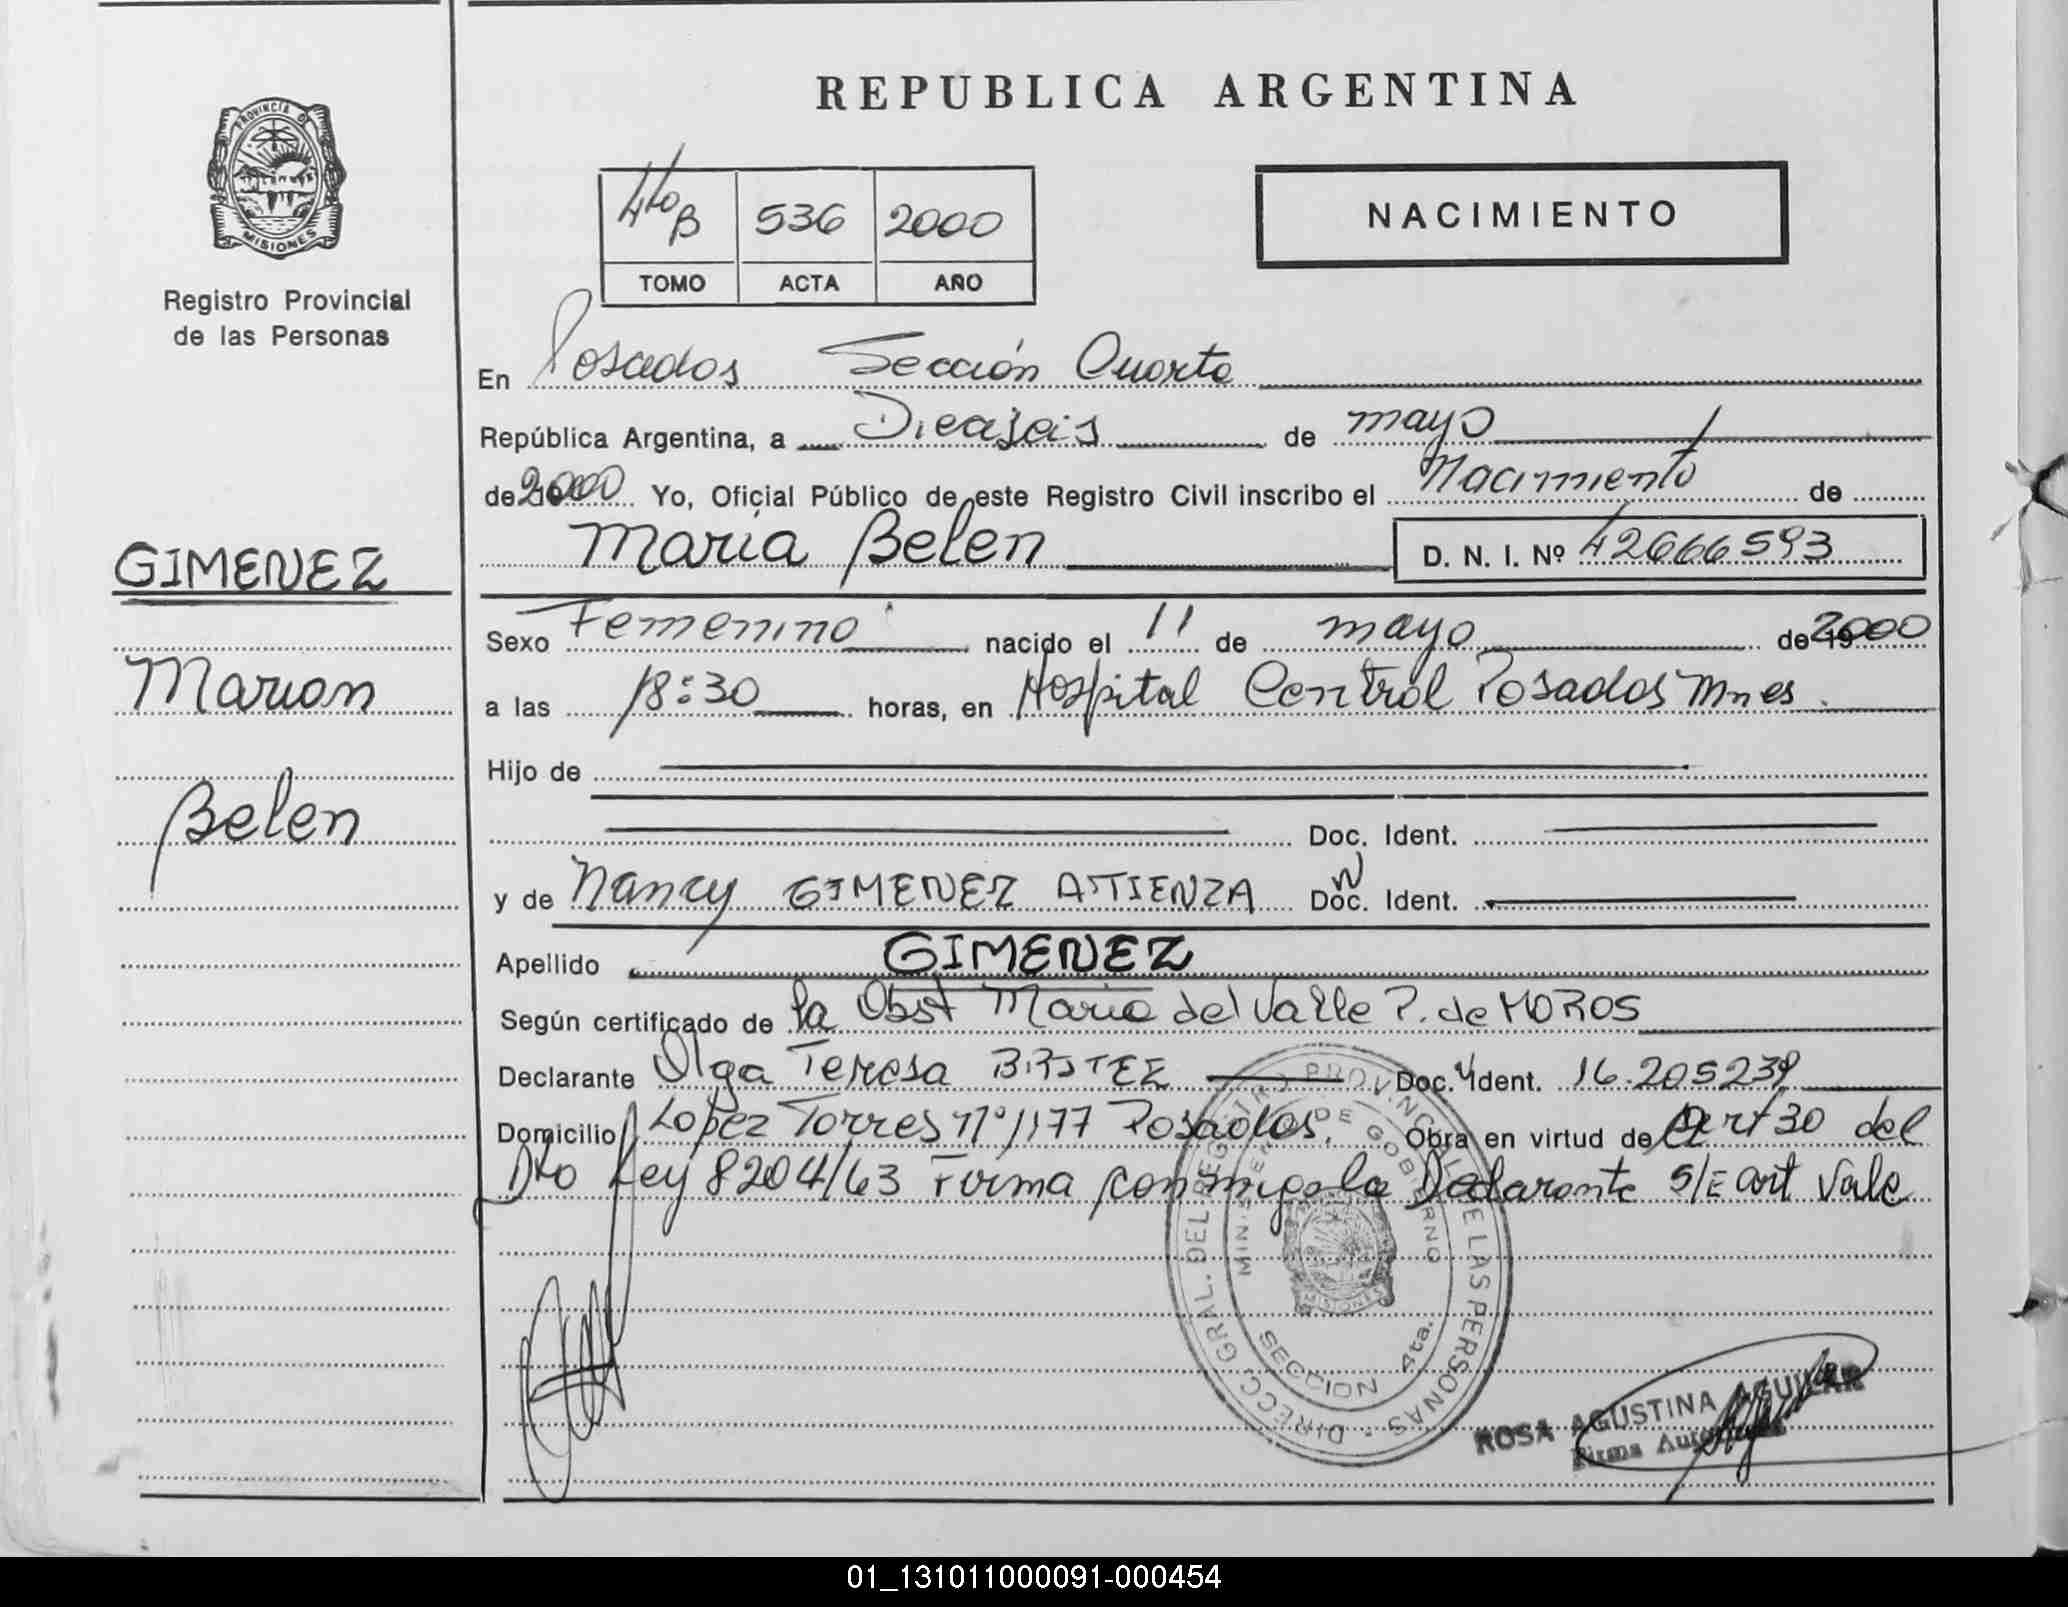 REPUBLICA ARGENTINA
PROVINCIA D
MISIONES
Registro Provincial
de las Personas
4to B 536 2000
TOMO ACTA AÑO
NACIMIENTO
En Posadas Sección Cuarta
República Argentina, a Dieciséis de mayo
de 2000 Yo, Oficial Público de este Registro Civil inscribo el Nacimiento de
María Belen D. N. I. Nº 42666593
Sexo Femenino nacido el 11 de mayo de 19 2000
a las 18:30 horas, en Hospital Central Posadas Mnes.
Hijo de
Doc. Ident.
y de Nancy GIMENEZ ATIENZA Doc. Ident.
Apellido GIMENEZ
Según certificado de la Obst Maria del Valle P. de MOROS
Declarante Olga Teresa Doc. Ident. 16.205239
Domicilio Lopez Torres nº 1177 Posadas. Obra en virtud de Art 30 del
Dto Ley 8204/63 Firma conmigo la Declarante S/E art Vale
GIMENEZ
Marian
Belen
DIRECC. GRAL. DEL REGISTRO PROVINCIAL DE LAS PERSONAS
MINISTERIO DE GOBIERNO
MISIONES
SECCION 4ta.
ROSA AGUSTINA AGUILAR
Firma
01_131011000091-000454